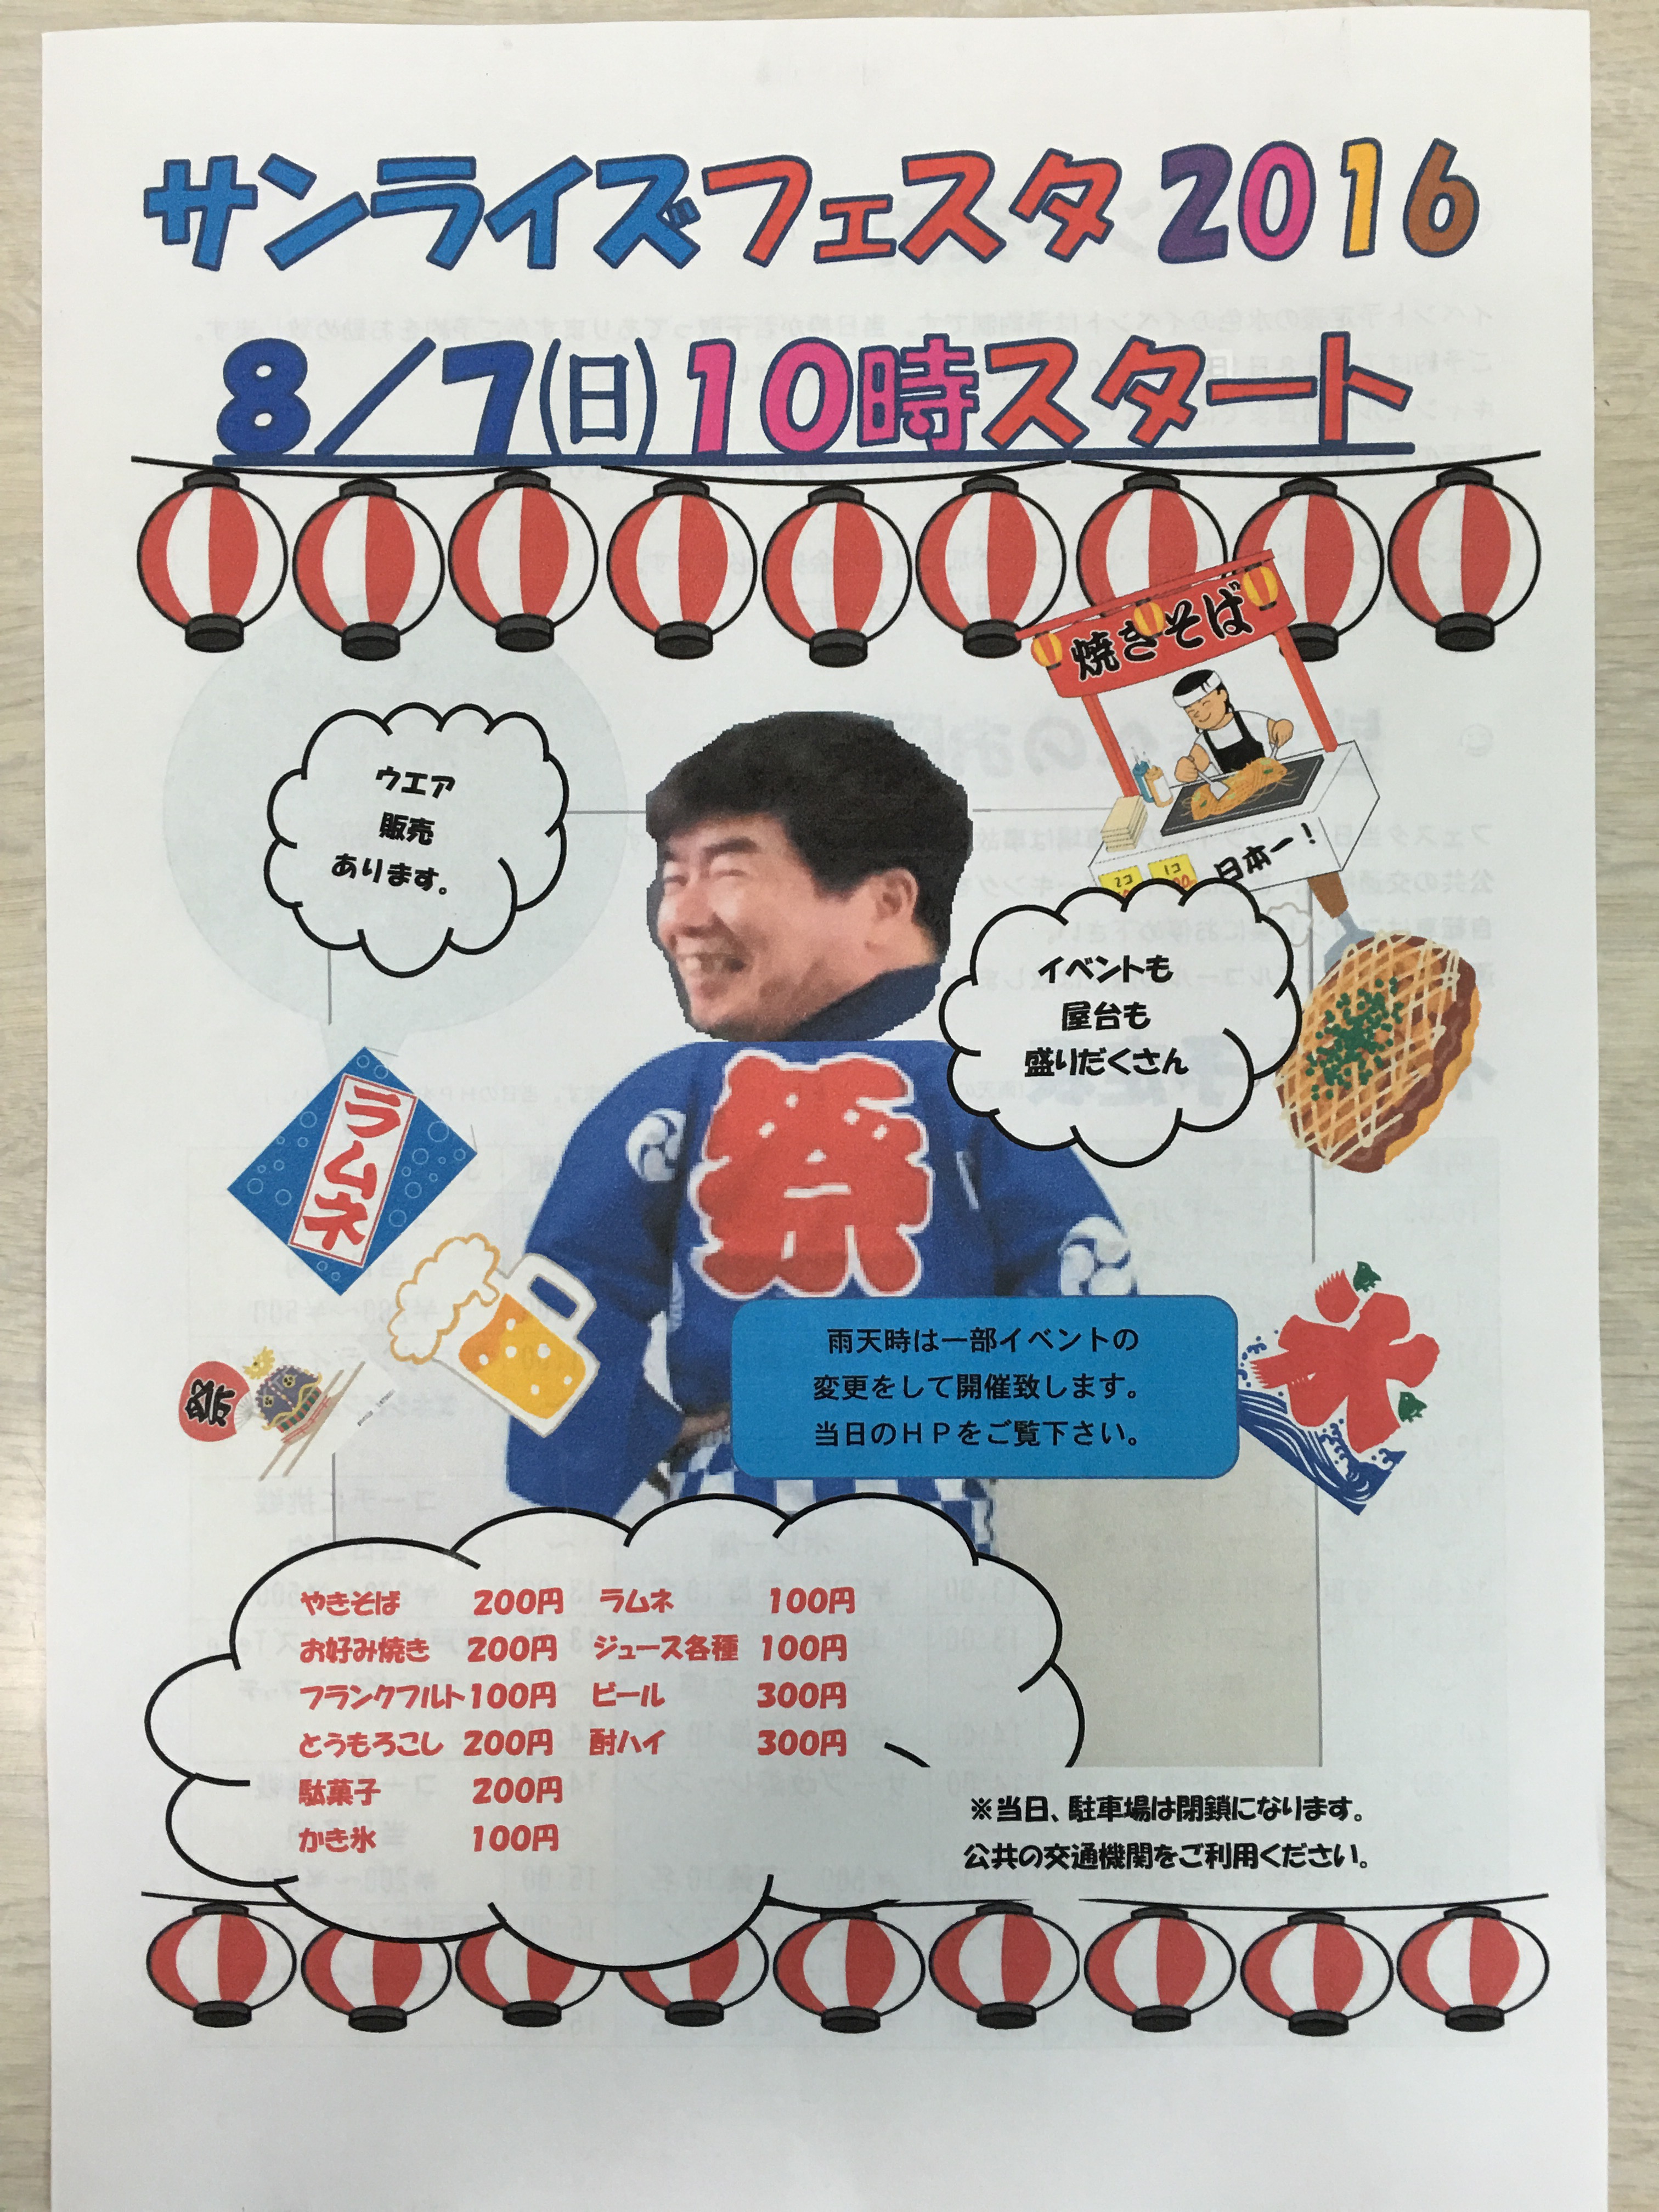 サンライズフェスタ2016
8/7(日)10時スタート
焼きそば
日本一!
ウエア
販売
あります。
イベントも
屋台も
盛りだくさん
ラムネ
祭
祭
氷
雨天時は一部イベントの
変更をして開催致します。
当日のHPをご覧下さい。
やきそば 200円 ラムネ 100円
お好み焼き 200円 ジュース各種 100円
フランクフルト100円 ビール 300円
とうもろこし 200円 酎ハイ 300円
駄菓子 200円
かき氷 100円
※当日、駐車場は閉鎖になります。
公共の交通機関をご利用ください。